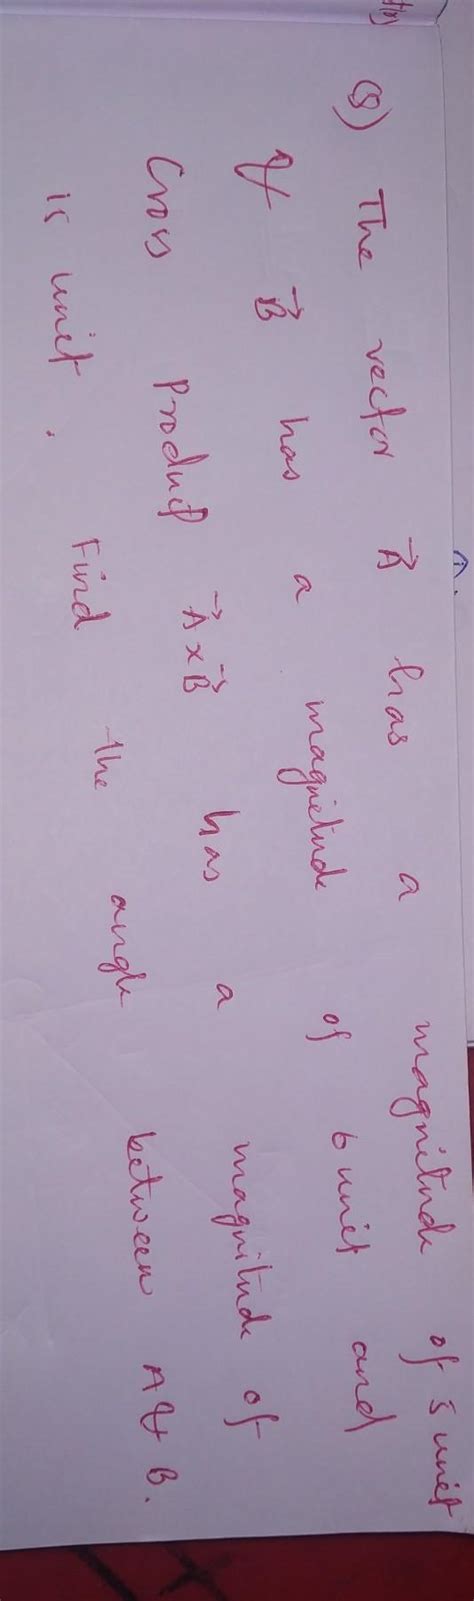 (8) The vector A⃗ has a magnitude of 5 unit
& B⃗ has a magnitude of 6 unit and
Cross product A⃗ × B⃗ has a magnitude of
15 unit. Find the angle between A & B.